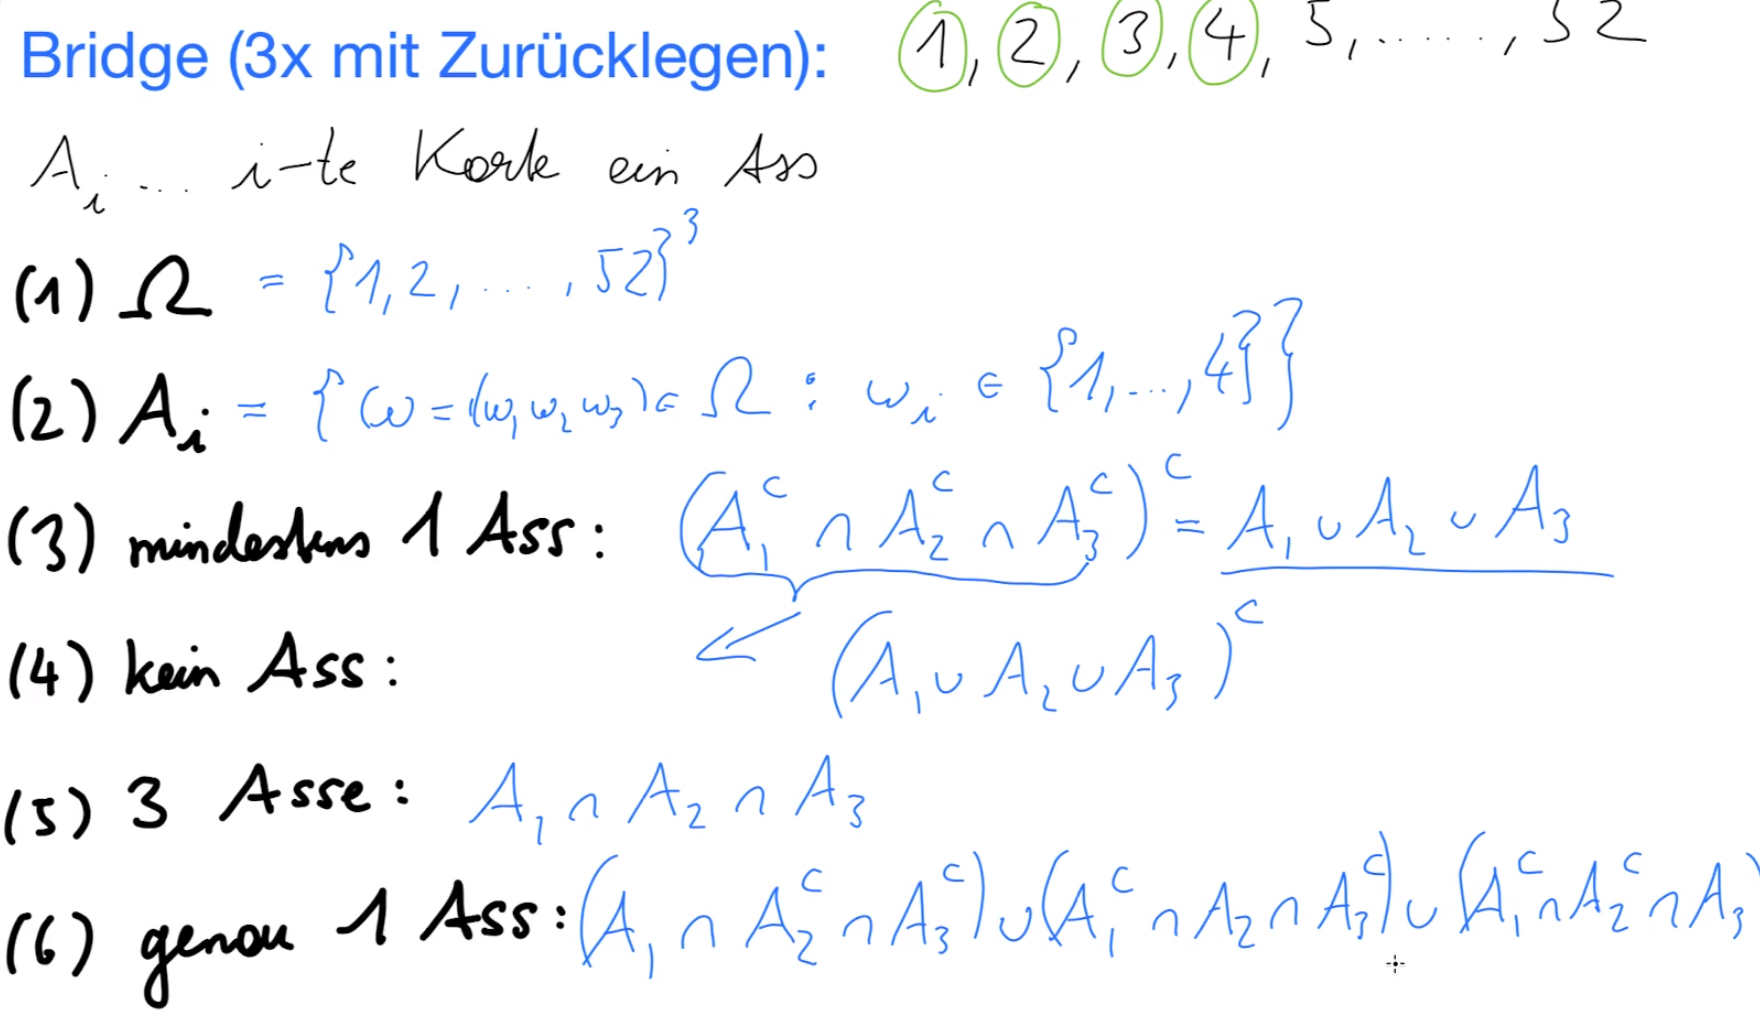 Bridge (3x mit Zurücklegen): 1, 2, 3, 4, 5, ....., 52
A_i ... i-te Karte ein Ass
(1) Ω = {1, 2, ..., 52}^3
(2) A_i = {ω = (ω_1 ω_2 ω_3) ∈ Ω : ω_i ∈ {1, ..., 4}}
(3) mindestens 1 Ass: (A_1^c ∩ A_2^c ∩ A_3^c)^c = A_1 ∪ A_2 ∪ A_3
(4) kein Ass: (A_1 ∪ A_2 ∪ A_3)^c
(5) 3 Asse: A_1 ∩ A_2 ∩ A_3
(6) genau 1 Ass: (A_1 ∩ A_2^c ∩ A_3^c) ∪ (A_1^c ∩ A_2 ∩ A_3^c) ∪ (A_1^c ∩ A_2^c ∩ A_3)